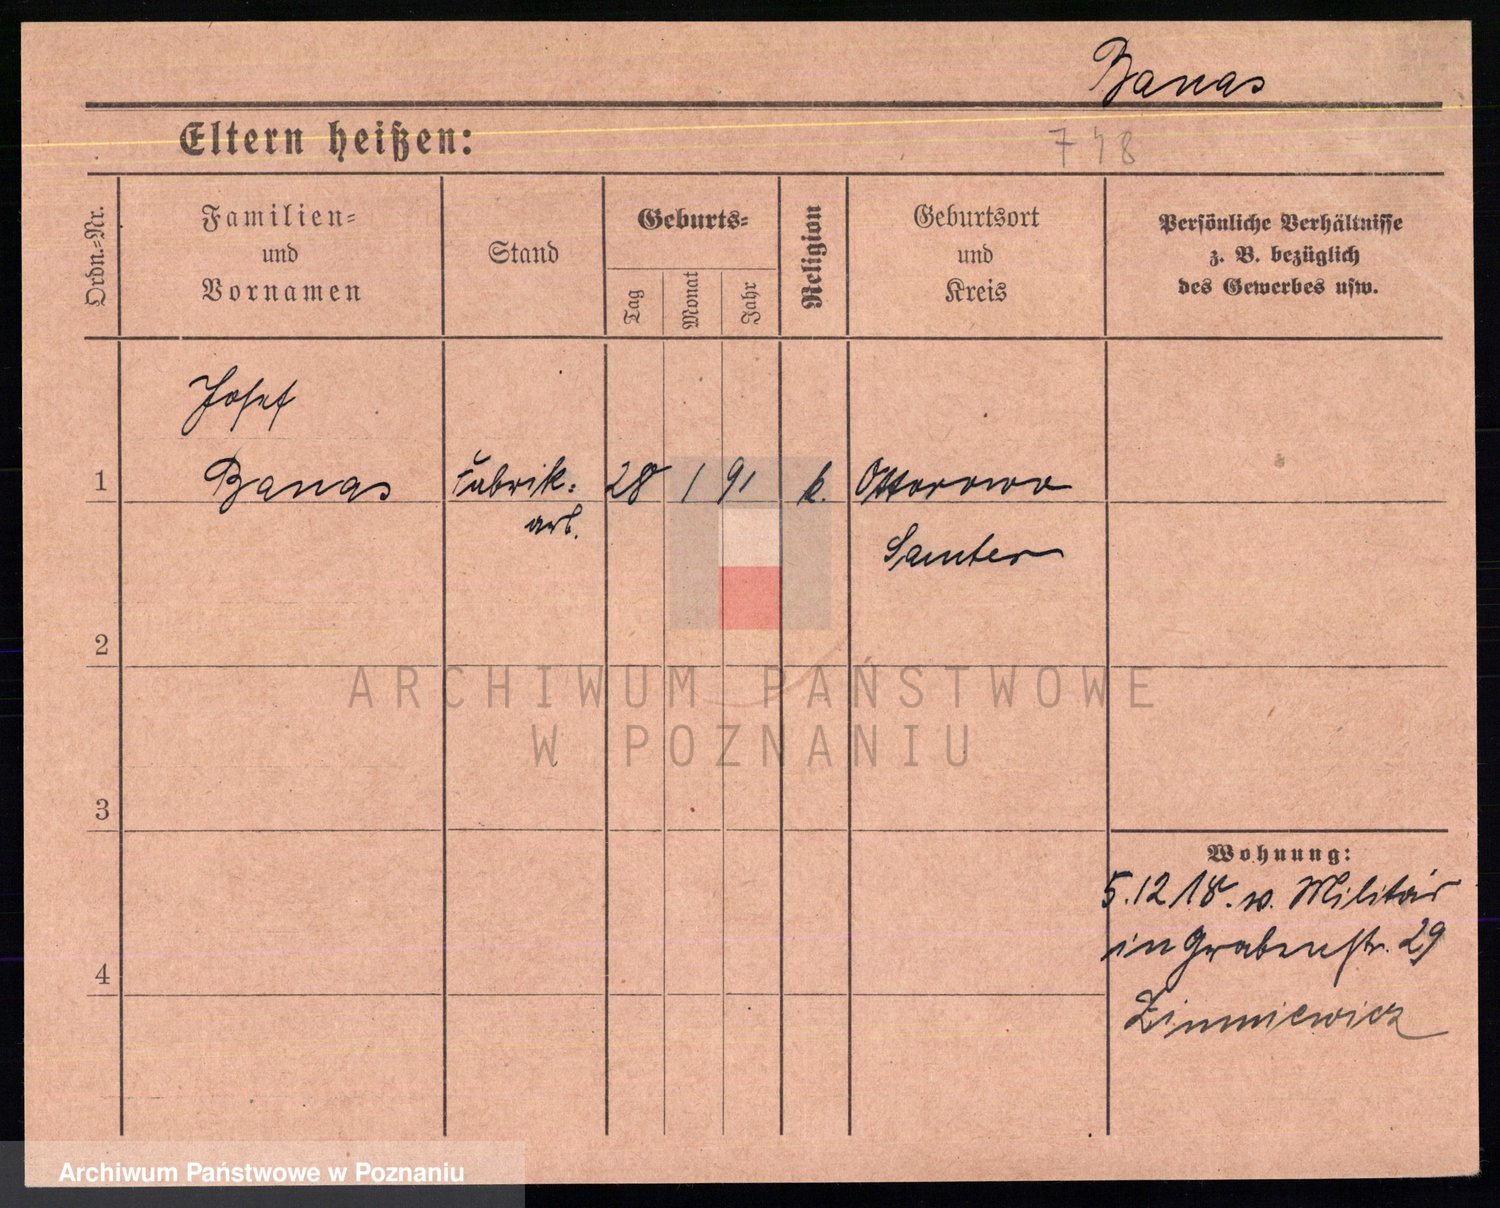 Banas
Eltern heißen:
748
Ordn.=Nr.
Familien=
und
Vornamen
Stand
Geburts=
Tag
Monat
Jahr
Religion
Geburtsort
und
Kreis
Persönliche Verhältnisse
z. B. bezüglich
des Gewerbes usw.
Josef
1 Banas Fabrik= 28 1 91 k. Ottorowo
arb.
Samter
2
ARCHIWUM PAŃSTWOWE
W POZNANIU
3
Wohnung:
5.12 18. v. Militär
in Grabenstr. 29
4
Zimniewicz
Archiwum Państwowe w Poznaniu